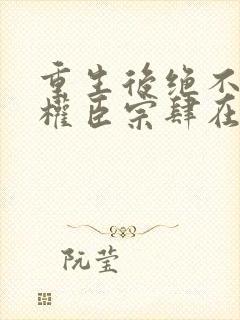 重生後绝不
權臣宗肆在
阮莹